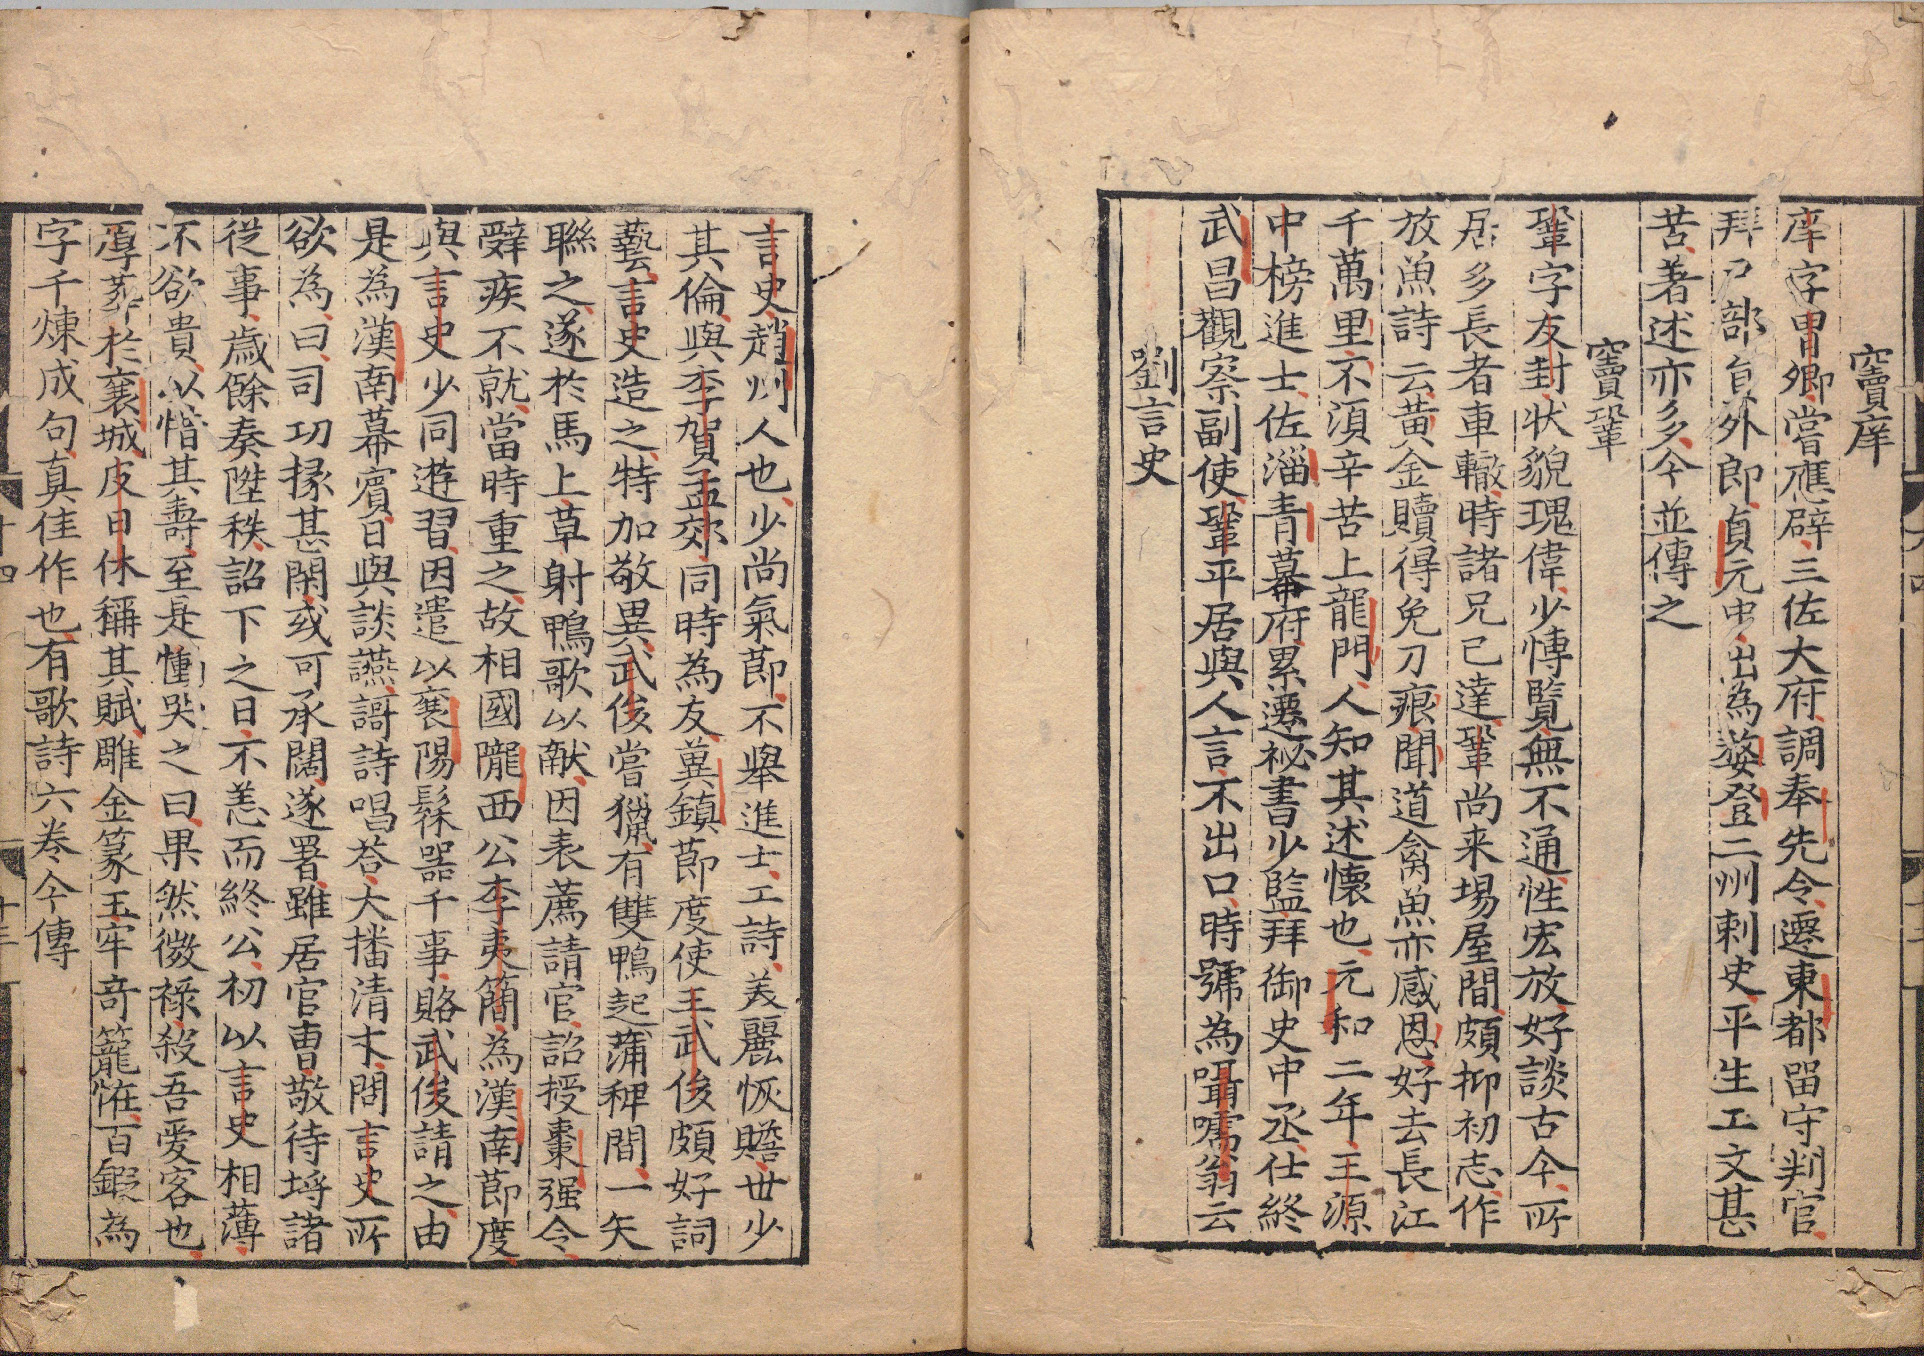 竇庠
庠字冑卿嘗應辟三佐大府調奉先令遷東都留守判官
拜戶部員外郎貞元中出為婺登二州刺史平生工文甚
苦著述亦多今並傳之
竇鞏
鞏字友封狀貌瑰偉少博覽無不通性宏放好談古今所
居多長者車轍時諸兄已達鞏尚来場屋間頗抑初志作
放魚詩云黄金贖得免刀痕聞道禽魚亦感恩好去長江
千萬里不須辛苦上龍門人知其述懷也元和二年王源
中榜進士佐淄青幕府累遷祕書少監拜御史中丞仕終
武昌觀察副使鞏平居與人言不出口時號為囁嚅翁云
劉言史
言史趙州人也少尚氣莭不舉進士工詩美麗恢贍世少
其倫與李賀孟郊同時為友冀鎮莭度使王武俊頗好詞
藝言史造之特加敬異武俊嘗獵有雙鴨起蒲稗間一矢
聯之遂於馬上草射鴨歌以献因表薦請官詔授棗强令
辤疾不就當時重之故相國隴西公李夷簡為漢南莭度
與言史少同遊習因遣以襄陽髹器千事賂武俊請之由
是為漢南幕賓日與談讌謌詩唱荅大播清才問言史所
欲為曰司功掾甚閑或可承闕遂署雖居官曹敬待埒諸
従事歳餘奏陞秩詔下之日不恙而終公初以言史相薄
不欲貴以惜其壽至是慟哭之曰果然微禄殺吾愛客也
厚葬於襄城皮日休稱其賦雕金篆玉牢奇籠恠百鍛為
字千煉成句真佳作也有歌詩六卷今傳